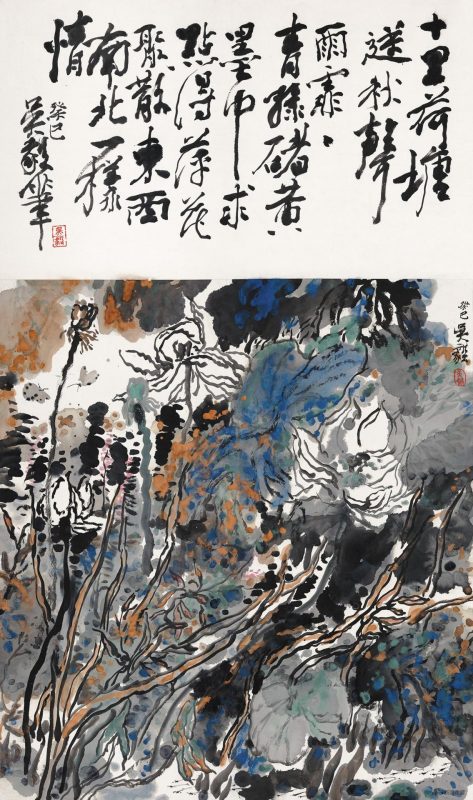 十里荷塘
送秋聲
雨霏〻
青綠赭黃
墨中求
點得萍花
聚散東西
南北一樣
情
癸巳
吳毅筆
吳毅
癸巳
吳毅